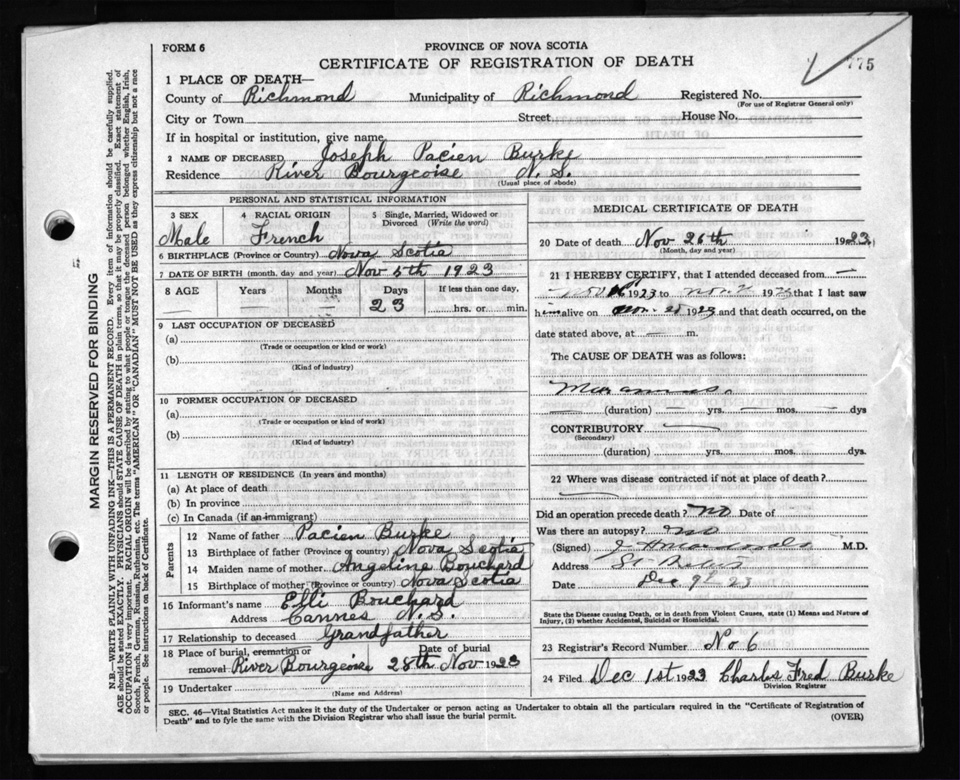 FORM 6
PROVINCE OF NOVA SCOTIA
CERTIFICATE OF REGISTRATION OF DEATH
775
1 PLACE OF DEATH—
County of Richmond Municipality of Richmond Registered No.
(For use of Registrar General only)
City or Town Street House No.
If in hospital or institution, give name
2 NAME OF DECEASED Joseph Pacien Burke
Residence River Bourgeoise N. S.
(Usual place of abode)
PERSONAL AND STATISTICAL INFORMATION
3 SEX 4 RACIAL ORIGIN 5 Single, Married, Widowed or Divorced (Write the word)
Male French
6 BIRTHPLACE (Province or Country) Nova Scotia
7 DATE OF BIRTH (month, day and year) Nov 5th 1923
8 AGE Years Months Days If less than one day,
23 hrs. or min.
9 LAST OCCUPATION OF DECEASED
(a)
(Trade or occupation or kind or work)
(b)
(Kind of industry)
10 FORMER OCCUPATION OF DECEASED
(a)
(Trade or occupation or kind of work)
(b)
(Kind of industry)
11 LENGTH OF RESIDENCE (In years and months)
(a) At place of death
(b) In province
(c) In Canada (if an immigrant)
Parents
12 Name of father Pacien Burke
13 Birthplace of father (Province or country) Nova Scotia
14 Maiden name of mother Angeline Bouchard
15 Birthplace of mother (Province or country) Nova Scotia
16 Informant's name Elli Bouchard
Address Cannes N. S.
17 Relationship to deceased Grandfather
18 Place of burial, cremation or removal River Bourgeoise Date of burial 28th Nov 1923
19 Undertaker
(Name and Address)
MEDICAL CERTIFICATE OF DEATH
20 Date of death Nov 26th 1923
(Month, day and year)
21 I HEREBY CERTIFY, that I attended deceased from —
1923 to Nov. 192 that I last saw
h alive on 1923 and that death occurred, on the
date stated above, at — m.
The CAUSE OF DEATH was as follows:
Marasmus.
(duration) yrs. mos. dys
CONTRIBUTORY
(Secondary)
(duration) yrs. mos. dys.
22 Where was disease contracted if not at place of death?
Did an operation precede death? No Date of
Was there an autopsy? No
(Signed) M.D.
Address St. Peters
Date Dec 9th 23
State the Disease causing Death, or in death from Violent Causes, state (1) Means and Nature of
Injury, (2) whether Accidental, Suicidal or Homicidal.
23 Registrar's Record Number No 6
24 Filed Dec 1st 1923 Charles Fred Burke
Division Registrar
SEC. 46—Vital Statistics Act makes it the duty of the Undertaker or person acting as Undertaker to obtain all the particulars required in the "Certificate of Registration of
Death" and to fyle the same with the Division Registrar who shall issue the burial permit.
(OVER)
MARGIN RESERVED FOR BINDING
N.B.—WRITE PLAINLY WITH UNFADING INK—THIS IS A PERMANENT RECORD. Every item of information should be carefully supplied.
AGE should be stated EXACTLY. PHYSICIANS should STATE CAUSE OF DEATH in plain terms, so that it may be properly classified. Exact statement of
OCCUPATION is very important. RACIAL ORIGIN will be described by stating to what people or tongue the deceased person belonged whether English, Irish,
Scotch, French, German, Russian, Ruthenian, etc. The terms "AMERICAN" OR "CANADIAN" MUST NOT BE USED as they express citizenship but not a race
or people. See instructions on back of Certificate.